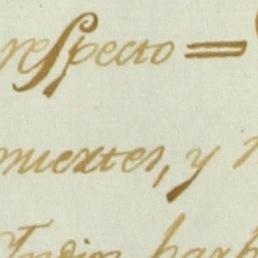 respecto =
muertes, y
Indios barb